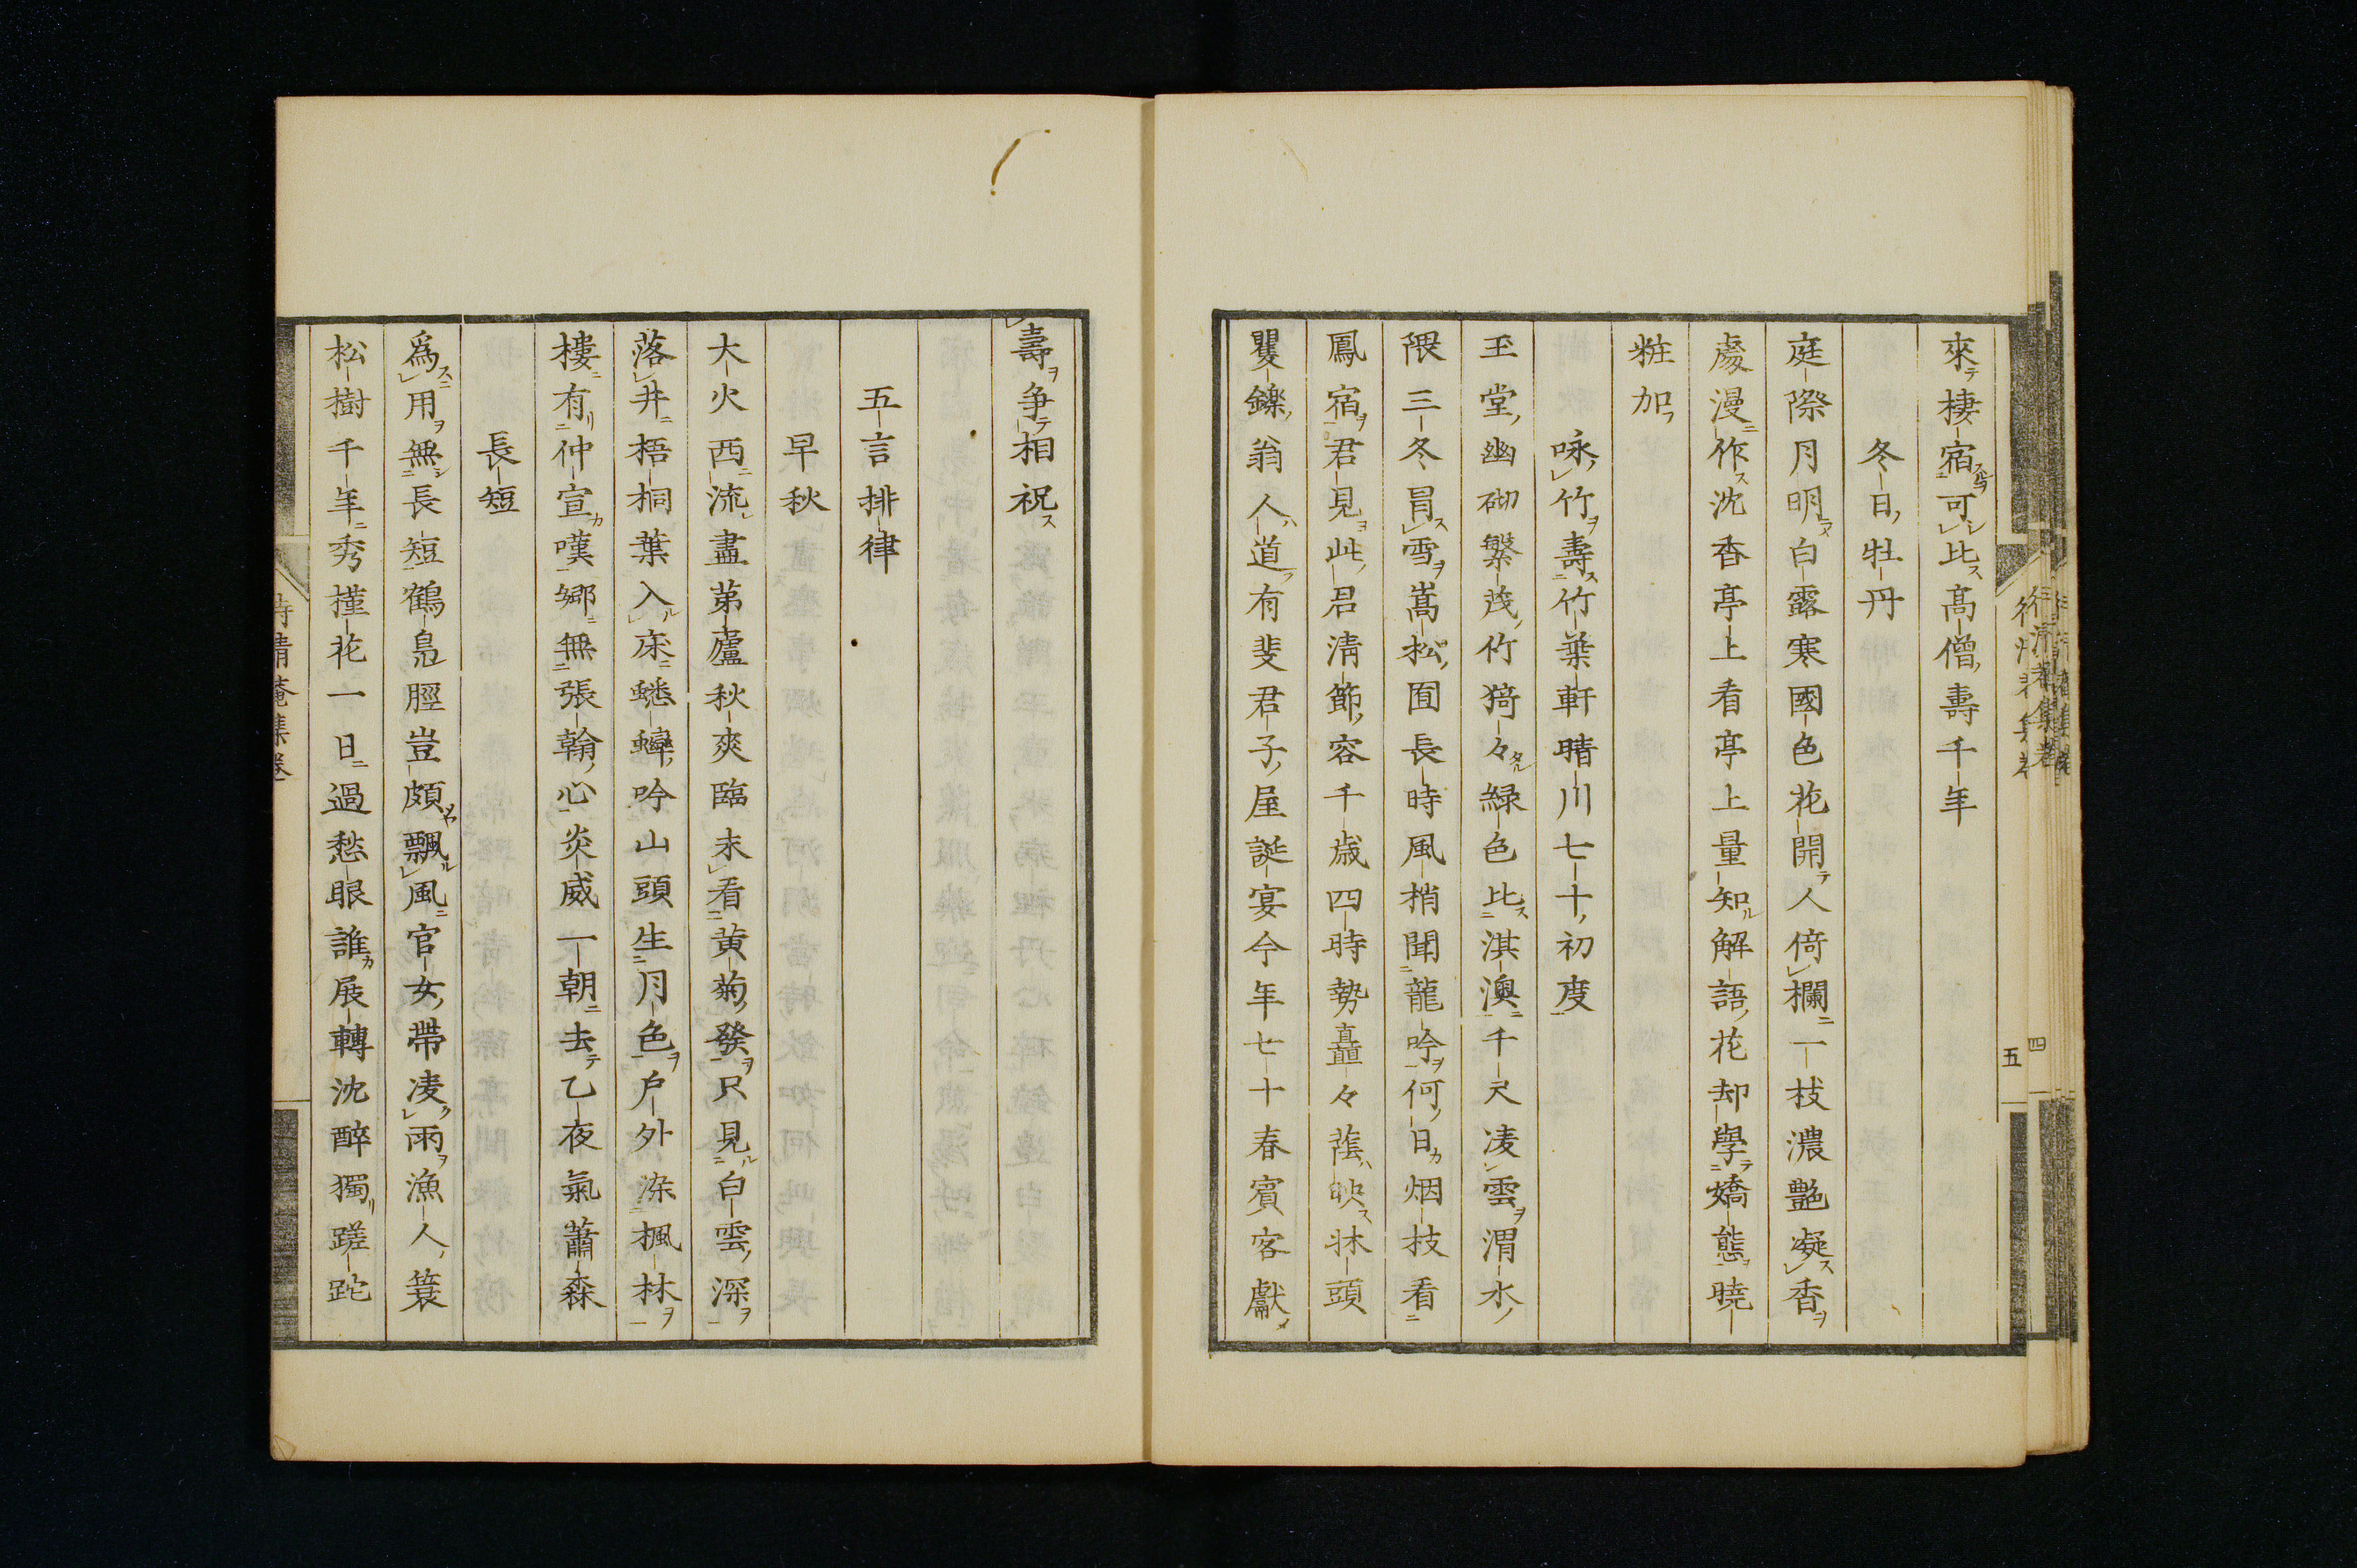 來棲宿可比高僧壽千年
冬日牡丹
庭際月明白露寒國色花開人倚欄一枝濃艷凝香
處漫作沈香亭上看亭上量知解語花却學嬌態曉
粧加
咏竹壽竹葉軒晴川七十初度
玉堂幽砌繁茂竹猗々緑色比淇澳千尺凌雲渭水
隈三冬冒雪嵩松囿長時風梢聞龍吟何日烟枝看
鳳宿君見此君清節容千歳四時勢矗々蔭映牀頭
矍鑠翁人道有斐君子屋誕宴今年七十春賓客獻
五
四
壽争相祝
五言排律
早秋
大火西流盡茅廬秋爽臨未看黄菊發只見白雲深
落井梧桐葉入床蟋蟀吟山頭生月色戸外染楓林
樓有仲宣嘆郷無張翰心炎威一朝去乙夜氣蕭森
長短
爲用無長短鶴鳧脛豈頗飄風官女帶凌雨漁人簑
松樹千年秀槿花一日過愁眼誰展轉沈醉獨蹉跎